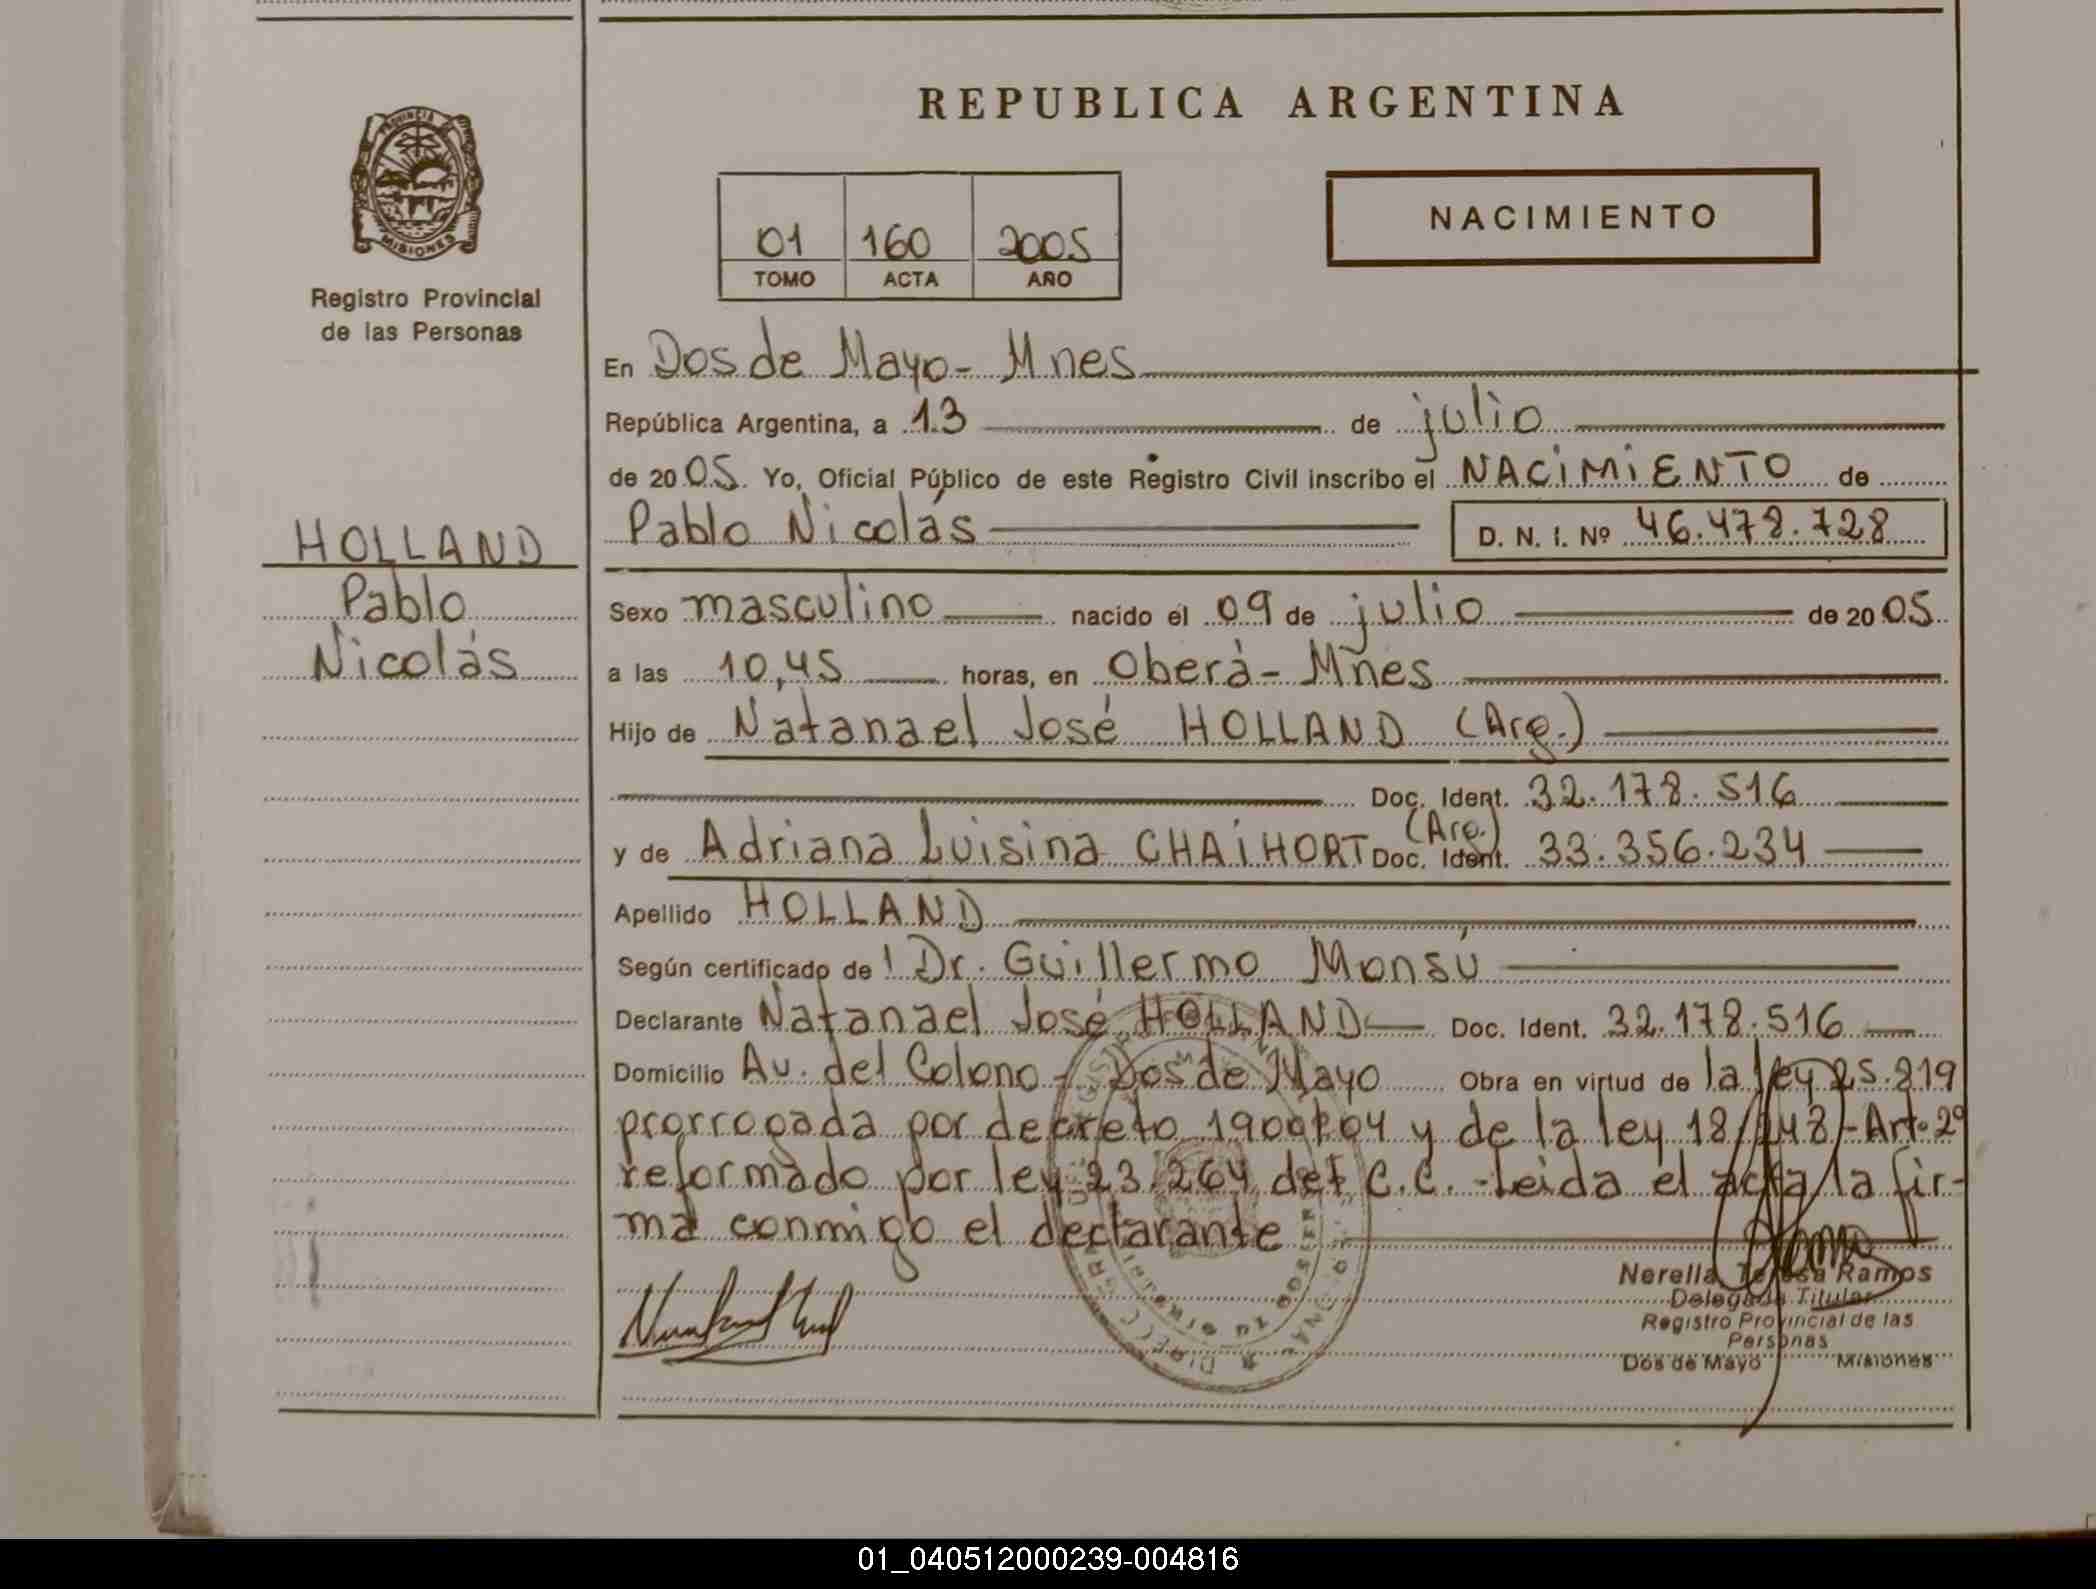 REPUBLICA ARGENTINA
PROVINCIA DE
MISIONES
Registro Provincial
de las Personas
01 160 2005
TOMO ACTA AÑO
NACIMIENTO
En Dos de Mayo - Mnes
República Argentina, a 13 de julio
de 2005. Yo, Oficial Público de este Registro Civil inscribo el NACIMIENTO de
Pablo Nicolás D. N. I. Nº 46.478.728
HOLLAND
Pablo
Nicolás
Sexo masculino nacido el 09 de julio de 2005.
a las 10,45 horas, en Oberá - Mnes
Hijo de Natanael José HOLLAND (Arg.)
Doc. Ident. 32.178.516
y de Adriana Luisina CHAIHORT (Arg.) Doc. Ident. 33.356.234
Apellido HOLLAND
Según certificado de Dr. Guillermo Monsú
Declarante Natanael José HOLLAND Doc. Ident. 32.178.516
Domicilio Av. del Colono - Dos de Mayo Obra en virtud de la ley 25.819
prorrogada por decreto y de la ley 18.248 - Art. 2º
reformado por ley 23.264 del C.C. - Leida el acta la fir-
ma conmigo el declarante
Nerella Teresa Ramos
Delegada Titular
Registro Provincial de las
Personas
Dos de Mayo Misiones
01_040512000239-004816